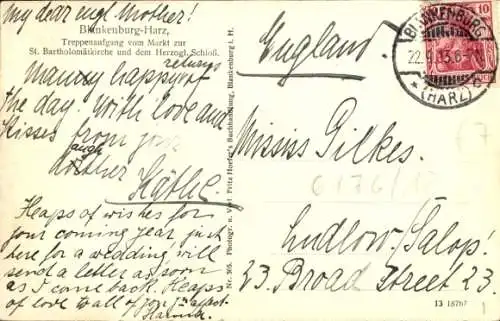 my dear engl mother!
Blankenburg-Harz,
Treppenaufgang vom Markt zur
St. Bartholomäikirche und dem Herzogl. Schloß.
Manny happy returns of
the day. With love and
Kisses from your
daughter
Käthe.
Heaps of wishes for
your coming year just
here for a wedding will
send a letter as soon
as I come back. Heaps
of love to all of you
Nr. 365. Photogr. u. Verl. Fritz Hoefer's Buchhandlung, Blankenburg i. H.
England
BLANKENBURG
22.9.13.6-7N
* (HARZ)
10
Mississ Gilkes.
Ludlow/Salop!
23. Broad Street 23.
13 18767